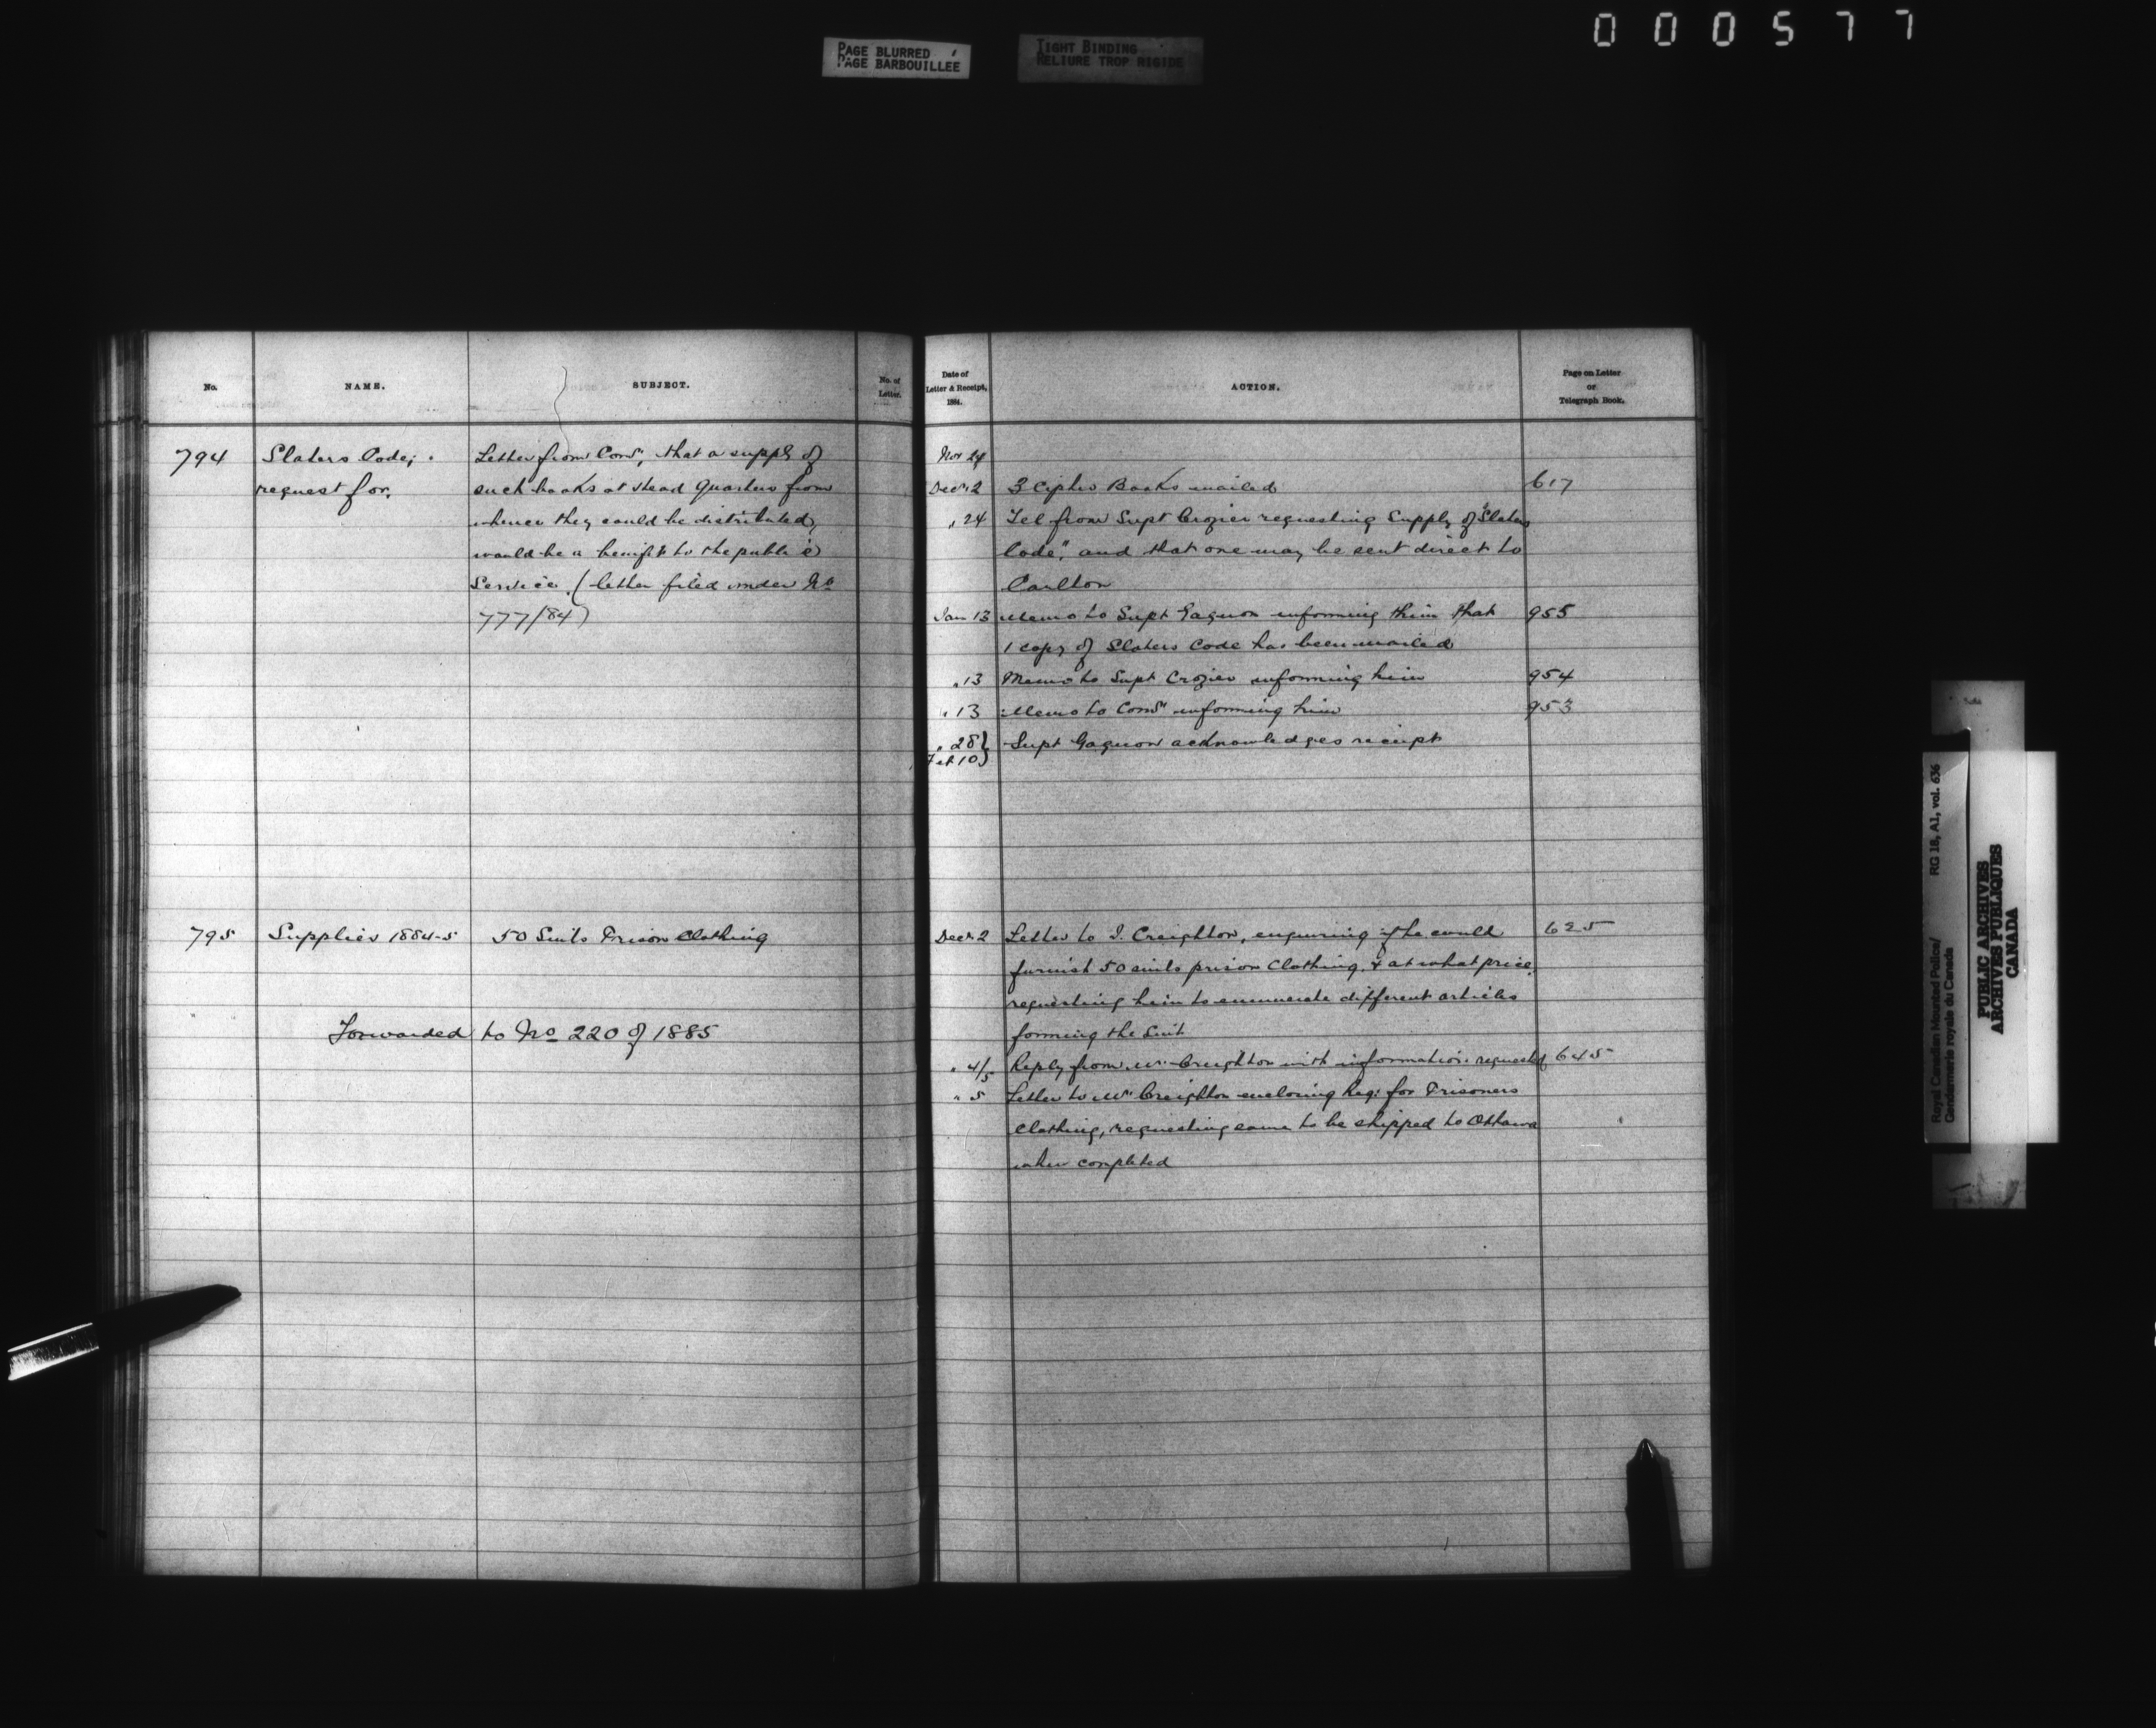 000577
PAGE BLURRED
PAGE BARBOUILLEE
TIGHT BINDING
RELIURE TROP RIGIDE
No.
NAME.
SUBJECT.
No. of
Letter.
794
Slaters Code;
request for.
Letter from Comr, that a supply of
such books at Head Quarters from
whence they could be distributed,
would be a benefit to the public
Service. (letter filed under No
777/84)
795
Supplies 1884-5
50 Suits Prison Clothing
Forwarded to No 220 of 1885
Date of
Letter & Receipt,
1884.
ACTION.
Page on Letter
or
Telegraph Book.
Nov 24
Decr 2 3 Cipher Books mailed 617
" 24 Tel from Supt Crozier requesting Supply of "Slaters
Code", and that one may be sent direct to
Carlton
Jan 13 Memo to Supt Gagnon informing him that 955
1 copy of Slaters Code has been mailed
" 13 Memo to Supt Crozier informing him 954
" 13 Memo to Comr informing him 953
" 28 } Supt Gagnon acknowledges receipt
Feb 10 }
Decr 2 Letter to J. Creighton, enquiring if he could 625
furnish 50 suits prison Clothing, & at what price,
requesting him to enumerate different articles
forming the Suit
" 4/5 Reply from Mr Creighton with information requested 645
" 5 Letter to Mr Creighton enclosing Req: for Prisoners
Clothing, requesting same to be shipped to Ottawa
when completed
Royal Canadian Mounted Police/
Gendarmerie royale du Canada
RG 18, A1, vol. 636
PUBLIC ARCHIVES
ARCHIVES PUBLIQUES
CANADA